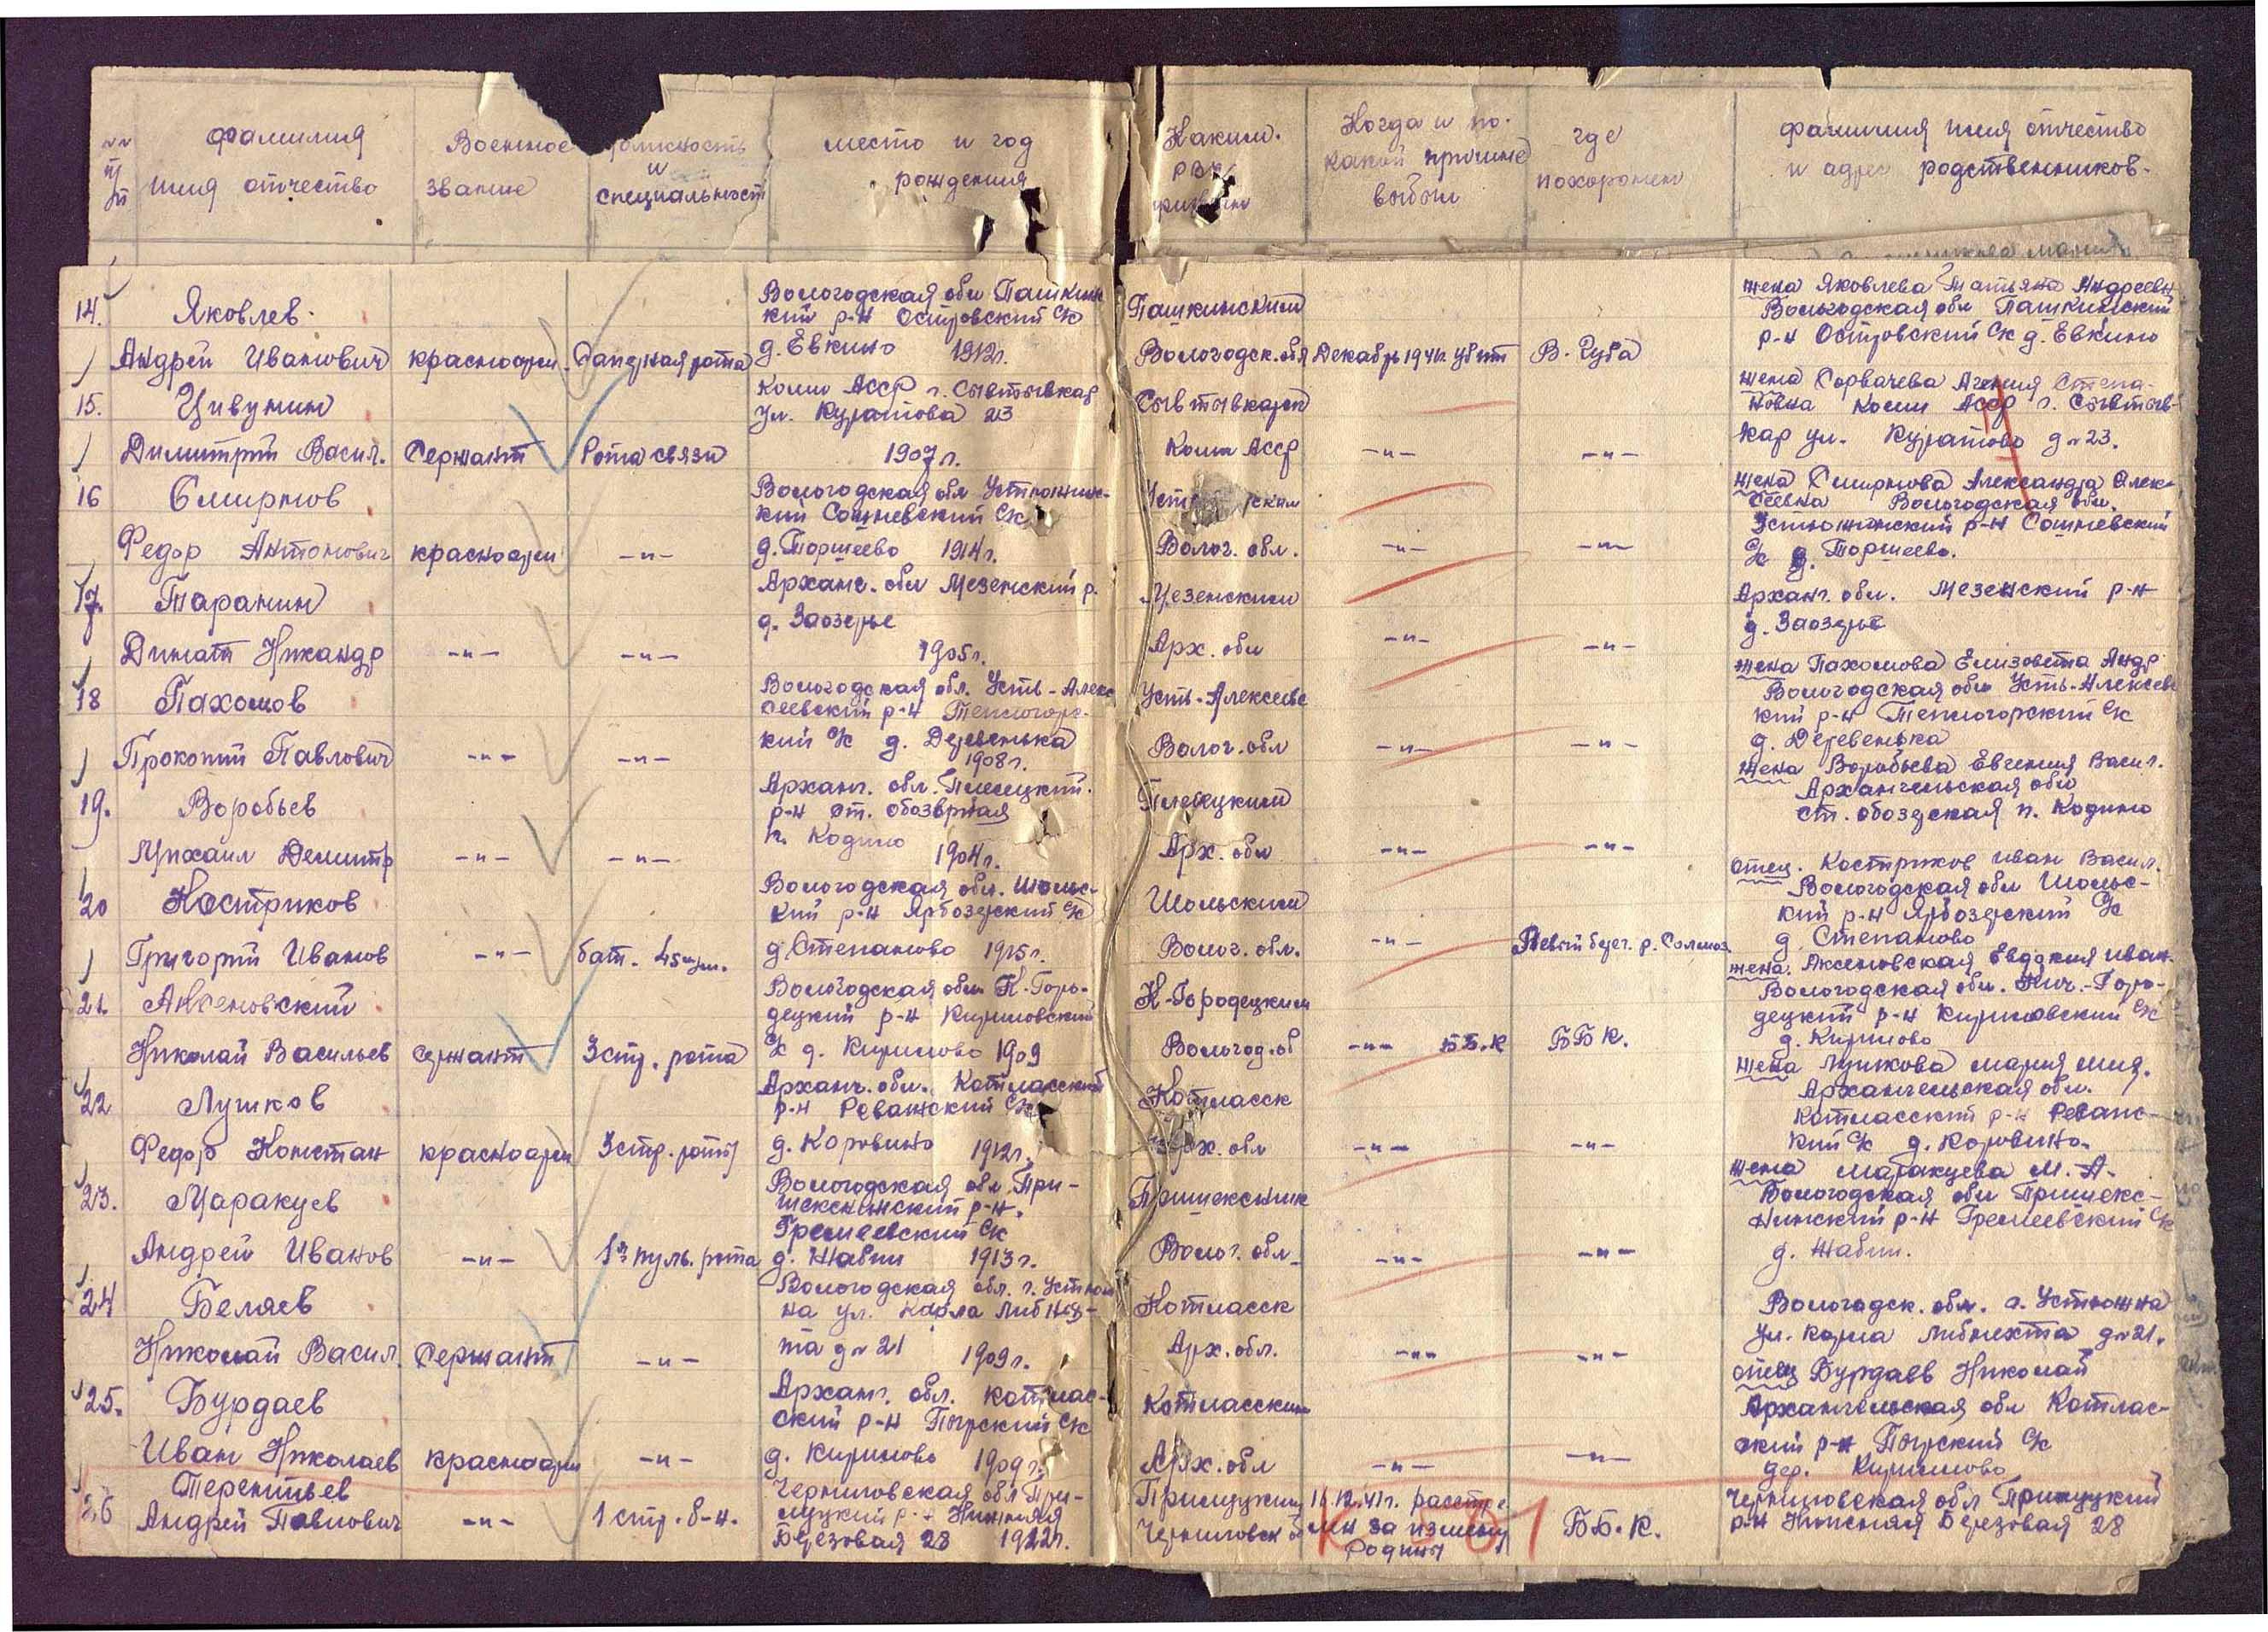 №№ п/п
фамилия имя отчество
Военное звание
должность и специальность
место и год рождения
Каким РВК призван
Когда и по какой причине выбыл
где похоронен
фамилия имя отчество и адрес родственников.
14. Яковлев
Андрей Иванович
красноарм.
Саперная рота
Вологодская обл Пашкинс
кий р-н Островский с/с
д. Евкино 1912г.
Пашкинский
Вологодск. обл
Декабрь 1941г. убит
В. Губа
жена Яковлева Татьяна Андреевн
Вологодская обл Пашкинский
р-н Островский с/с д. Евкино
15. Цивунин
Димитрий Васил.
Сержант
Рота связи
Коми АССР г. Сывтывкар
ул. Куратова 23
1907г.
Сывтывкарск
Коми АССР
-"-
-"-
жена Горвачева Агения Степа-
новна Коми АССР г. Сывтыв-
кар ул. Куратово д № 23.
16 Смирнов
Федор Антонович
красноарм
-"-
Вологодская обл Устюжинс-
кий Сошневский с/с
д. Торшеево 1914г.
Волог. обл.
-"-
-"-
жена Смирнова Александра Алек-
сеевна Вологодская обл.
Устюжинский р-н Сошневский
с/с д. Торшеево.
17. Таранин
Динат Никандр
-"-
-"-
Арханг. обл Мезенский р.
д. Заозерье
1905г.
Мезенским
Арх. обл
-"-
-"-
Арханг. обл. Мезенский р-н
д. Заозерье
18 Пахомов
Прокопий Павлович
-"-
-"-
Вологодская обл. Усть-Алекс
сеевский р-н Теплогорс-
кий с/с д. Деревенька
1908г.
Усть-Алексеевс
Волог. обл
-"-
-"-
жена Пахомова Елизовета Андр
Вологодская обл Усть-Алексеевс
кий р-н Теплогорский с/с
д. Деревенька
19. Воробьев
Михаил Демитр
-"-
-"-
Арханг. обл. Плесецкий
р-н ст. обозерная
п. Кодино 1904г.
Плесецкий
Арх. обл
-"-
-"-
жена Воробьева Евгения Васил.
Архангельская обл
ст. обозерская п. Кодино
20 Костриков
Григорий Иванов
-"-
бат. 45 мм.
Вологодская обл. Шольс-
кий р-н Ярбозерский с/с
д. Степаново 1915г.
Шольский
Волог. обл.
-"-
Левый берег. р. Солмоз
отец. Костриков Иван Васил.
Вологодская обл Шольс-
кий р-н Ярбозерский с/с
д. Степаново
21. Аксеновский
Николай Васильев
сержант
3стр. рота
Вологодская обл К-Горо-
децкий р-н Кириловский
с/с д. Кирилово 1909
К-Городецкий
Вологод. об
-"- ББ.К
ББК.
жена. Аксеновская Евдокия Иван.
Вологодская обл. Кич.-Горо-
децкий р-н Кириловский с/с
д. Кирилово
22 Лушков
Федор Констан
красноарм
3стр. роты
Арханг. обл. Котласский
р-н Реважский с/с
д. Коровино 1912г.
Котласск
Арх. обл
-"-
-"-
жена Лушкова Мария Мих.
Архангельская обл.
Котласский р-н Реважс-
кий с/с д. Коровино.
23. Маракуев
Андрей Иванов
-"-
1я пуль. рота
Вологодская обл При-
шекснинский р-н.
Гремеевский с/с
д. Жабин 1913г.
Пришекснинс
Волог. обл.
-"-
-"-
жена Маракуева М. А.
Вологодская обл Пришекс-
нинский р-н Гремеевский с/с
д. Жабин.
24 Беляев
Николай Васил.
Сержант
-"-
Вологодская обл. г. Устюж
на ул. Карла Либкнех-
та д № 21 1909г.
Котласск
Арх. обл.
-"-
-"-
Вологодск. обл. г. Устюжна
ул. Карла Либнехта д № 21.
25. Бурдаев
Иван Николаев
красноарм
-"-
Арханг. обл. Котлас-
ский р-н с/с
д. Кирилово 1909г.
Котласским
Арх. обл
-"-
-"-
отец Бурдаев Николай
Архангельская обл Котлас-
ский р-н с/с
дер. Кирилово
26 Терентьев
Андрей Павлович
-"-
1 стр. б-н.
Черниговская обл При-
луцкий р-н Нижняя
Березовая 28 1922г.
Прилуцким
Черниговск о
11.12.41г. расстре
лян за измену
Родины
ББ.К.
Черниговская обл Прилуцкий
р-н Нижняя Березовая 28